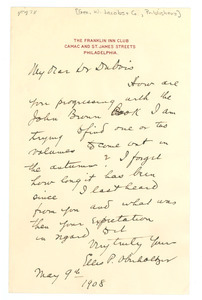 [Geo. W. Jacobs & Co., Publishers]
THE FRANKLIN INN CLUB
CAMAC AND ST. JAMES STREETS
PHILADELPHIA.
My dear Dr DuBois
How are
you progressing with the
John Brown Book I am
trying to find one or two
volumes to come out in
the autumn? I forget
how long it has been
since I last heard
from you and what was
then your expectation
in regard to it
Very truly yours
Ellis P. Oberholtzer
May 9th
1908